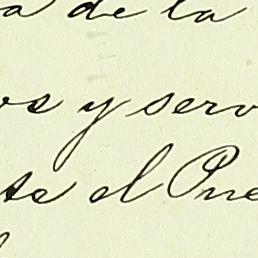 a de la
os y serv
te el Pue